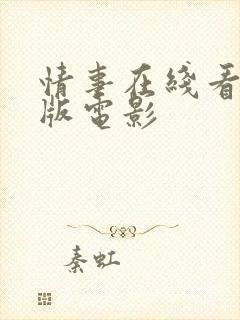 情事在线看
版电影
秦虹